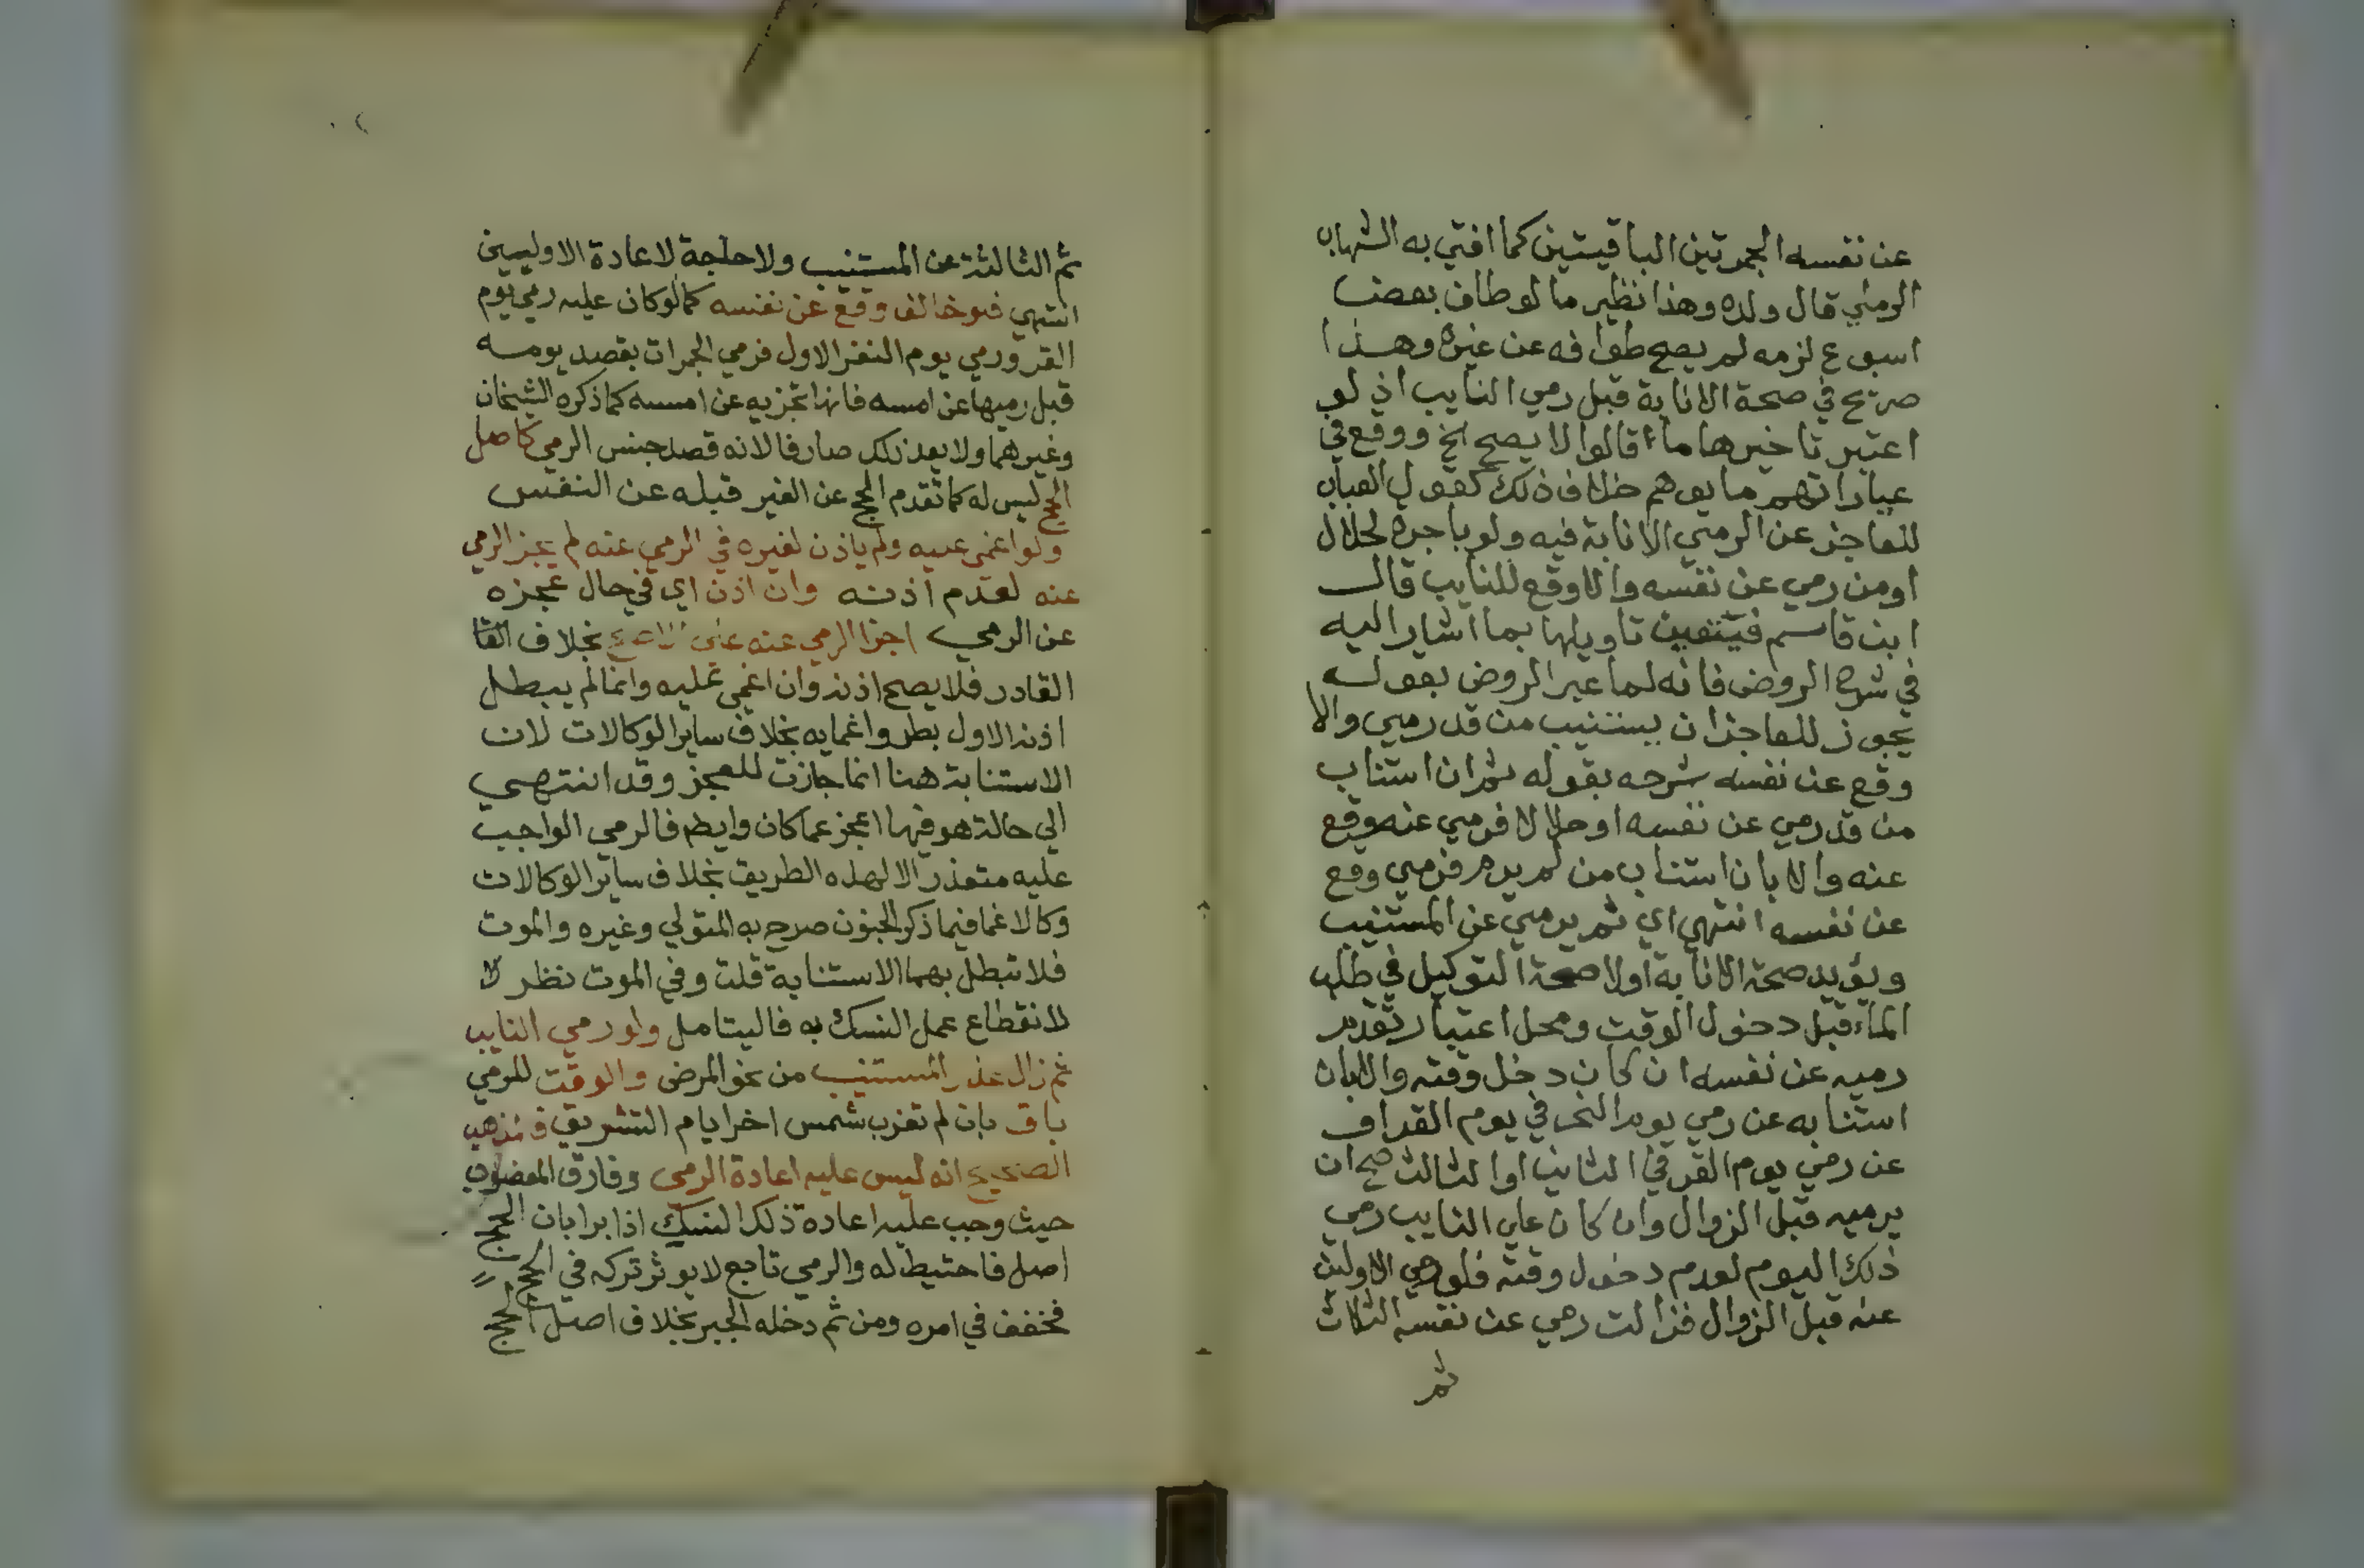 عن نفسه الجمرتين الباقيتين كما افتي به الشهاب
الرملي قال ولده وهذا نظير ما لو طاف بعض
اسبوع لزمه لم يصح طوافه عن غيره وهذا
صريح في صحة الانابة قبل رمي النايب اذ لو
اعتبر تاخيرها ما قالوا لا يصح الخ ووقع في
عباراتهم ما يوهم خلاف ذلك كقول العباب
للعاجز عن الرمي الانابة فيه ولو باجرة لحلال
او من رمي عن نفسه والا وقع للنايب قال
ابن قاسم فيتعين تاويلها بما اشار اليه
في شرح الروض فانه لما عبر الروض بقوله
يجوز للعاجز ان يستنيب من قد رمي والا
وقع عن نفسه شرحه بقوله ثم ان استناب
من قد رمي عن نفسه او حلالا فرمي عنه وقع
عنه والا بان استناب من لم يرم فرمي وقع
عن نفسه انتهي اي ثم يرمي عن المستنيب
ويؤيد صحة الانابة اولا صحة التوكيل في طلب
الماء قبل دخول الوقت ومحل اعتبار تقدم
رميه عن نفسه ان كان دخل وقته والا بان
استنابه عن رمي يوم النحر في يوم القر او
عن رمي يوم القر في الثاني او الثالث صح ان
يرميه قبل الزوال وان كان علي النايب رمي
ذلك اليوم لعدم دخول وقته فلو رمي الاولين
عنه قبل الزوال فزالت رمي عن نفسه الثلاث
ثم
ثم الثالثة عن المستنيب ولا حاجة لاعادة الاوليين
انتهي فلو خالف وقع عن نفسه كما لو كان عليه رمي يوم
القر ورمي يوم النفر الاول فرمي الجمرات بقصد يومه
قبل رميها عن امسه فانها تجزيه عن امسه كما ذكره الشيخان
وغيرهما ولا يعد ذلك صارفا لانه قصد جنس الرمي كاصل
الحج ليس له كما تقدم الحج عن الغير قبله عن النفس
ولو اغمي عليه ولم ياذن لغيره في الرمي عنه لم يجز الرمي
عنه لعدم اذنه وان اذن اي في حال عجزه
عن الرمي اجزا الرمي عنه علي الاصح بخلاف القا
القادر فلا يصح اذنه وان اغمي عليه وانما لم يبطل
اذنه الاول بطرو اغمايه بخلاف ساير الوكالات لان
الاستنابة هنا انما جازت للعجز وقد انتهي
الي حالة هو فيها اعجز عما كان وايضا فالرمي الواجب
عليه متعذر الا لهذه الطريق بخلاف ساير الوكالات
وكالاغما فيما ذكر الجنون صرح به المتولي وغيره والموت
فلا تبطل بهما الاستنابة قلت وفي الموت نظر لا
لانقطاع عمل النسك به فاليتامل ولو رمي النايب
ثم زال عذر المستنيب من نحو المرض والوقت للرمي
باق بان لم تغرب شمس اخر ايام التشريق فمذهب
الصحيح انه ليس عليه اعادة الرمي وفارق المعضوب
حيث وجب عليه اعادة ذلك النسك اذا برا بان الحج
اصل فاحتيط له والرمي تابع لا يوثر تركه في الحج
فخفف في امره ومن ثم دخله الجبر بخلاف اصل الحج